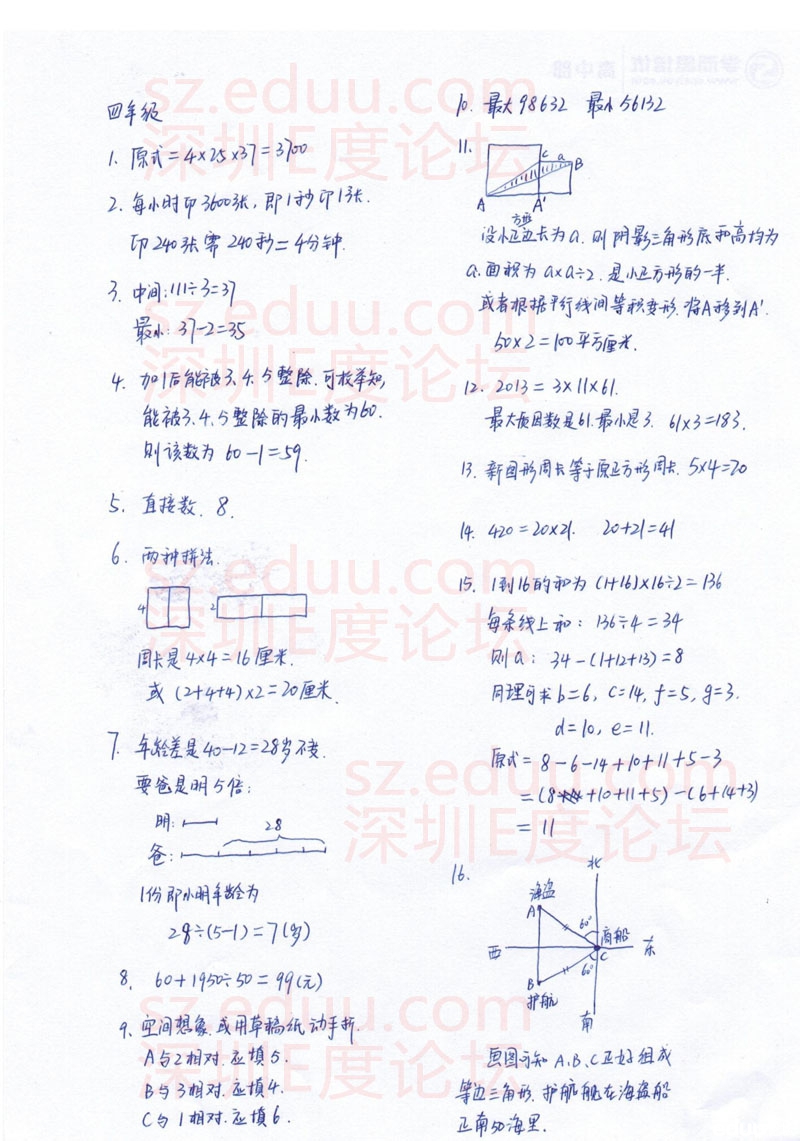 四年级
1. 原式=4×25×37=3700
2. 每小时印3600张,即1秒印1张.
印240张需240秒=4分钟.
3. 中间:111÷3=37
最小: 37-2=35
4. 加1后能被3.4.5整除.可枚举知,
能被3.4.5整除的最小数为60.
则该数为 60-1=59.
5. 直接数. 8.
6. 两种拼法.
4 2
周长是4×4=16厘米.
或 (2+4+4)×2=20厘米.
7. 年龄差是40-12=28岁不变.
要爸是明5倍:
明:
28
爸:
1份即小明年龄为
28÷(5-1)=7(岁)
8. 60+1950÷50=99(元)
9. 空间想象.或用草稿纸动手折.
A与2相对.应填5.
B与3相对.应填4.
C与1相对.应填6.
10. 最大98632 最小56132
11.
C a B
A A'
设小正方形边长为a.则阴影三角形底和高均为
a.面积为a×a÷2.是小正方形的一半.
或者根据平行线间等积变形.将A移到A'.
50×2=100平方厘米.
12. 2013=3×11×61.
最大质因数是61.最小是3. 61×3=183.
13. 新图形周长等于原正方形周长. 5×4=20
14. 420=20×21. 20+21=41
15. 1到16的和为 (1+16)×16÷2=136
每条线上和: 136÷4=34
则a: 34-(1+12+13)=8
同理可求b=6, c=14, f=5, g=3.
d=10, e=11.
原式=8-6-14+10+11+5-3
=(8+10+11+5)-(6+14+3)
=11
16.
北
海盗
A 60° 商船
西 C 东
B 60°
护航
南
画图可知A.B.C正好组成
等边三角形.护航舰在海盗船
正南50海里.
sz.eduu.com
深圳E度论坛
sz.eduu.com
深圳E度论坛
sz.eduu.com
深圳E度论坛
sz.eduu.com
深圳E度论坛
sz.eduu.com
深圳E度论坛